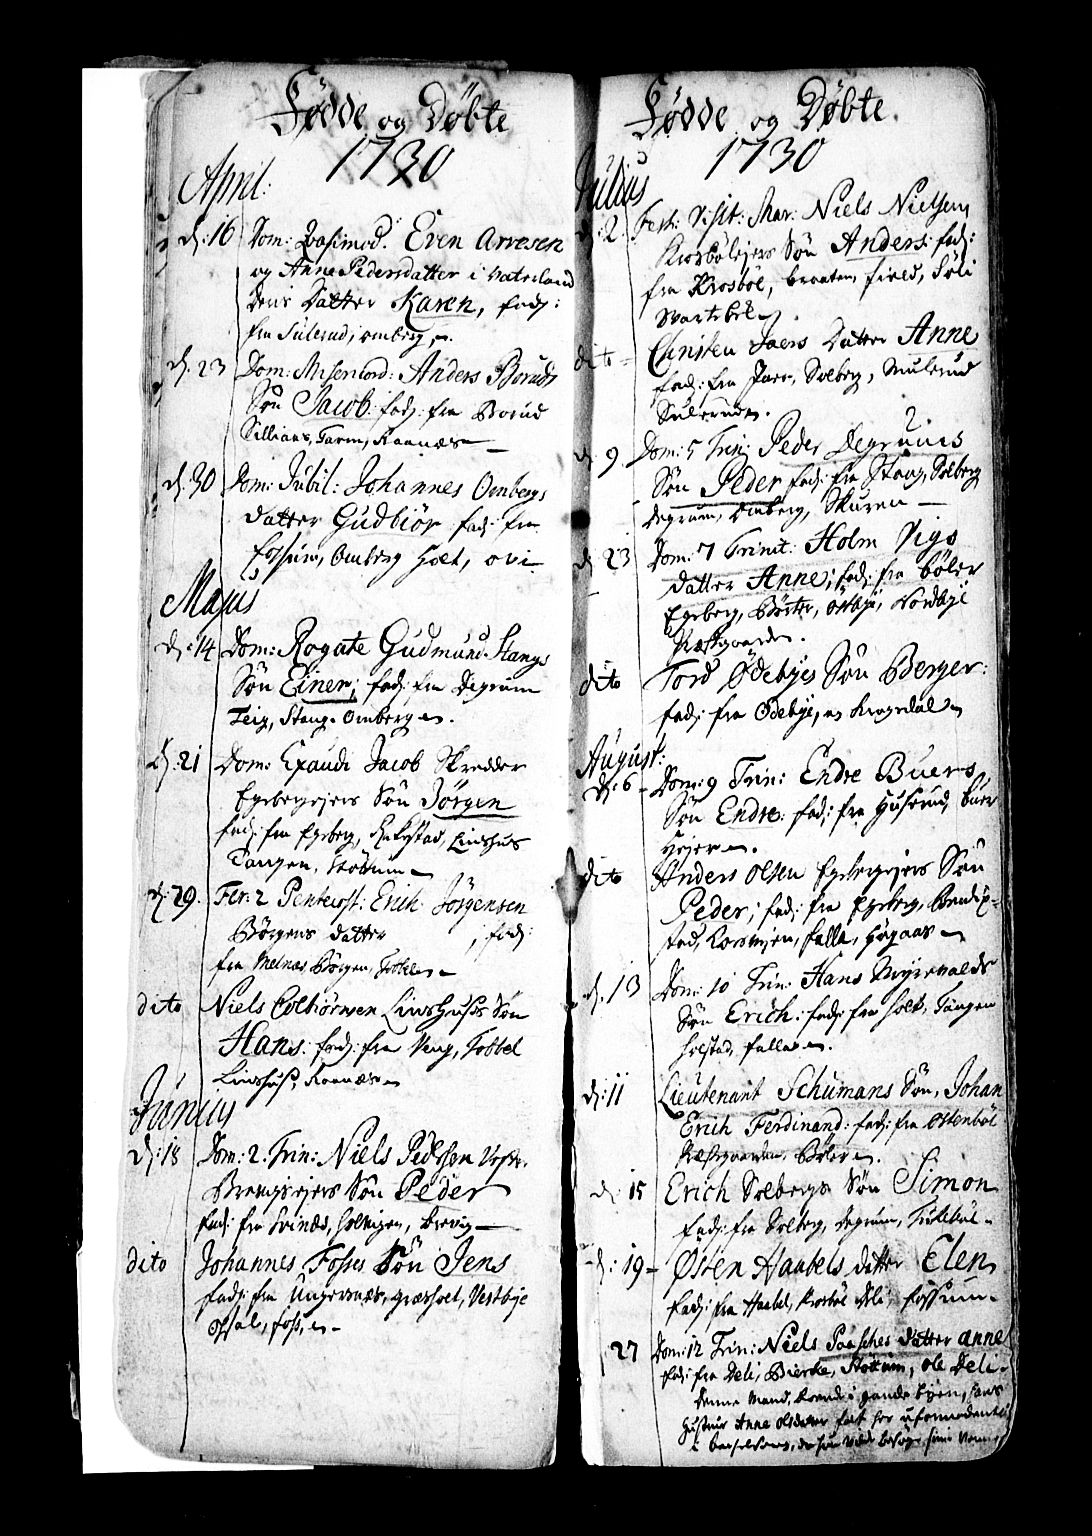 Fødde og Døbte
1730
April:
d: 16 Dom: Qvasimod. Even Arvesen
og Anne Pedersdatter i Vaterland
Deris Datter Karen, fad:
fra Sulerud, omberg,
d. 23 Dom: Misericord: Anders Boruds
Søn Jacob: fad: fra Borud
Sillians, Tarm, Raanæs
d: 30 Dom: Jubil: Johannes Ombergs
datter Gudbiør fad: fra
Fossum, Omberg Holt, ovi
Majus
d: 14 Dom: Rogate Gudmund Stangs
Søn Einer; fad: fra Degrum
Teig, Stang, Omberg
d: 21 Dom: Exaudi Jacob Skredder
Egebergejers Søn Jørgen
fad: fra Egeberg, Linshus
Tangen, Støttum
d: 29. Fer: 2 Pentecost: Erich Jørgensen
Børgens datter ; fad:
fra Melnæs, Børgen, Tobbel
dito Niels Colbiørnsen Linshuses Søn
Hans: fad: fra Teig, Tobbel
Linshuse, Raanæs
Junius
d: 18 Dom: 2. Trin: Niels Pedersen
Brevigsejers Søn Peder
fad: fra Svinæs, brevig
dito Johannes Fosses Søn Jens
fad: fra Ungersnæs, græsholt, Vestbye
foss,
Fødde og Døbte.
1730
Julius
d: 2 Fest: Visit: Mar: Niels Nielsen
Krosbølejers Søn Anders: fad:
fra Krosbøl, braaten, field, Deli
Svartebek
dito Christen Jaers Datter Anne
fad: fra Jaer, Solberg, Mulerud
Sulerud.
d: 9 Dom: 5 Trin: Peder Degrums
Søn Peder fad: fra Stang, Solberg
Degrum, Omberg, Skuren
d: 23 Dom: 7 Trinit: Holm Vigs
datter Anne; fad: fra bøler
Egeberg, Børter, Østbye, Nordbye
Præstgaarden.
dito Tord Ødebyes Søn Berger:
fad: fra Ødebye, og Krogsdal
August:
d: 6 Dom: 9 Trin: Endre Buers
Søn Endre: fad: fra Huserud, buer
Højer
dito Anders Olsen Egebergejers Søn
Peder; fad: fra Egeberg, Bendix-
stad, Korsvejen, falla, Høgaas
d. 13 Dom: 10 Trin: Hans Myrevalds
Søn Erich: fad: fra holt, Tangen
holstad, falla
d: 11 Lieutenant Schumans Søn, Johan
Erich Ferdinand: fad: fra Ostenbøl
Præstgaarden, Bøler
d: 15 Erich Solbergs Søn Simon
fad: fra Solberg, Degrum, Tuttebøl
d: 19 Østen Haabels datter Elen
fad: fra Haabel, Krosbøl Deli, Fossum
27 Dom: 12 Trin: Niels Paasches datter Anne
fad: fra Deli, Biercke, Støttum, Ole Deli
Denne Mand, boende i gamle byen, hans
Hustrue Anne Olsdatter
i barselseng,